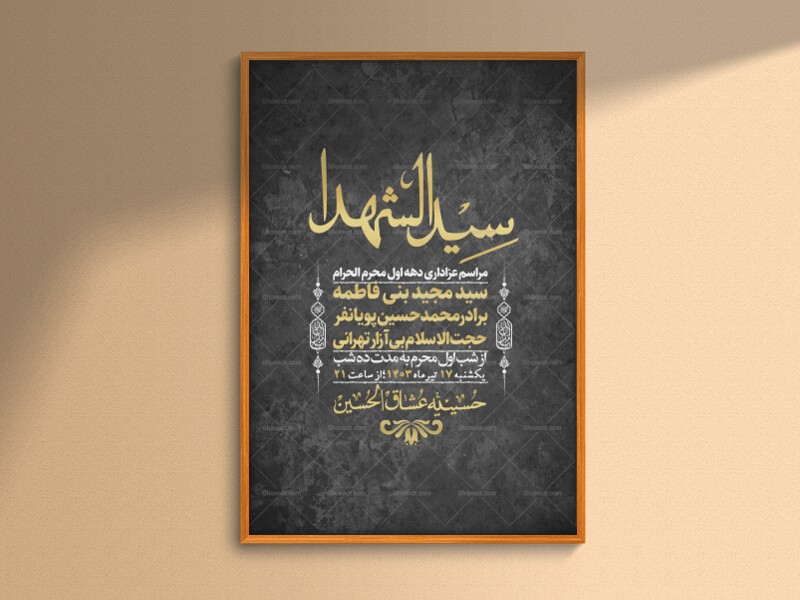 سید الشهدا
مراسم عزاداری دهه اول محرم الحرام
سید مجید بنی فاطمه
برادر محمدحسین پویانفر
حجت الاسلام بی آزار تهرانی
از شب اول محرم به مدت ده شب
یکشنبه ۱۷ تیر ماه ۱۴۰۳ از ساعت ۲۱
حسینیه عشاق الحسین